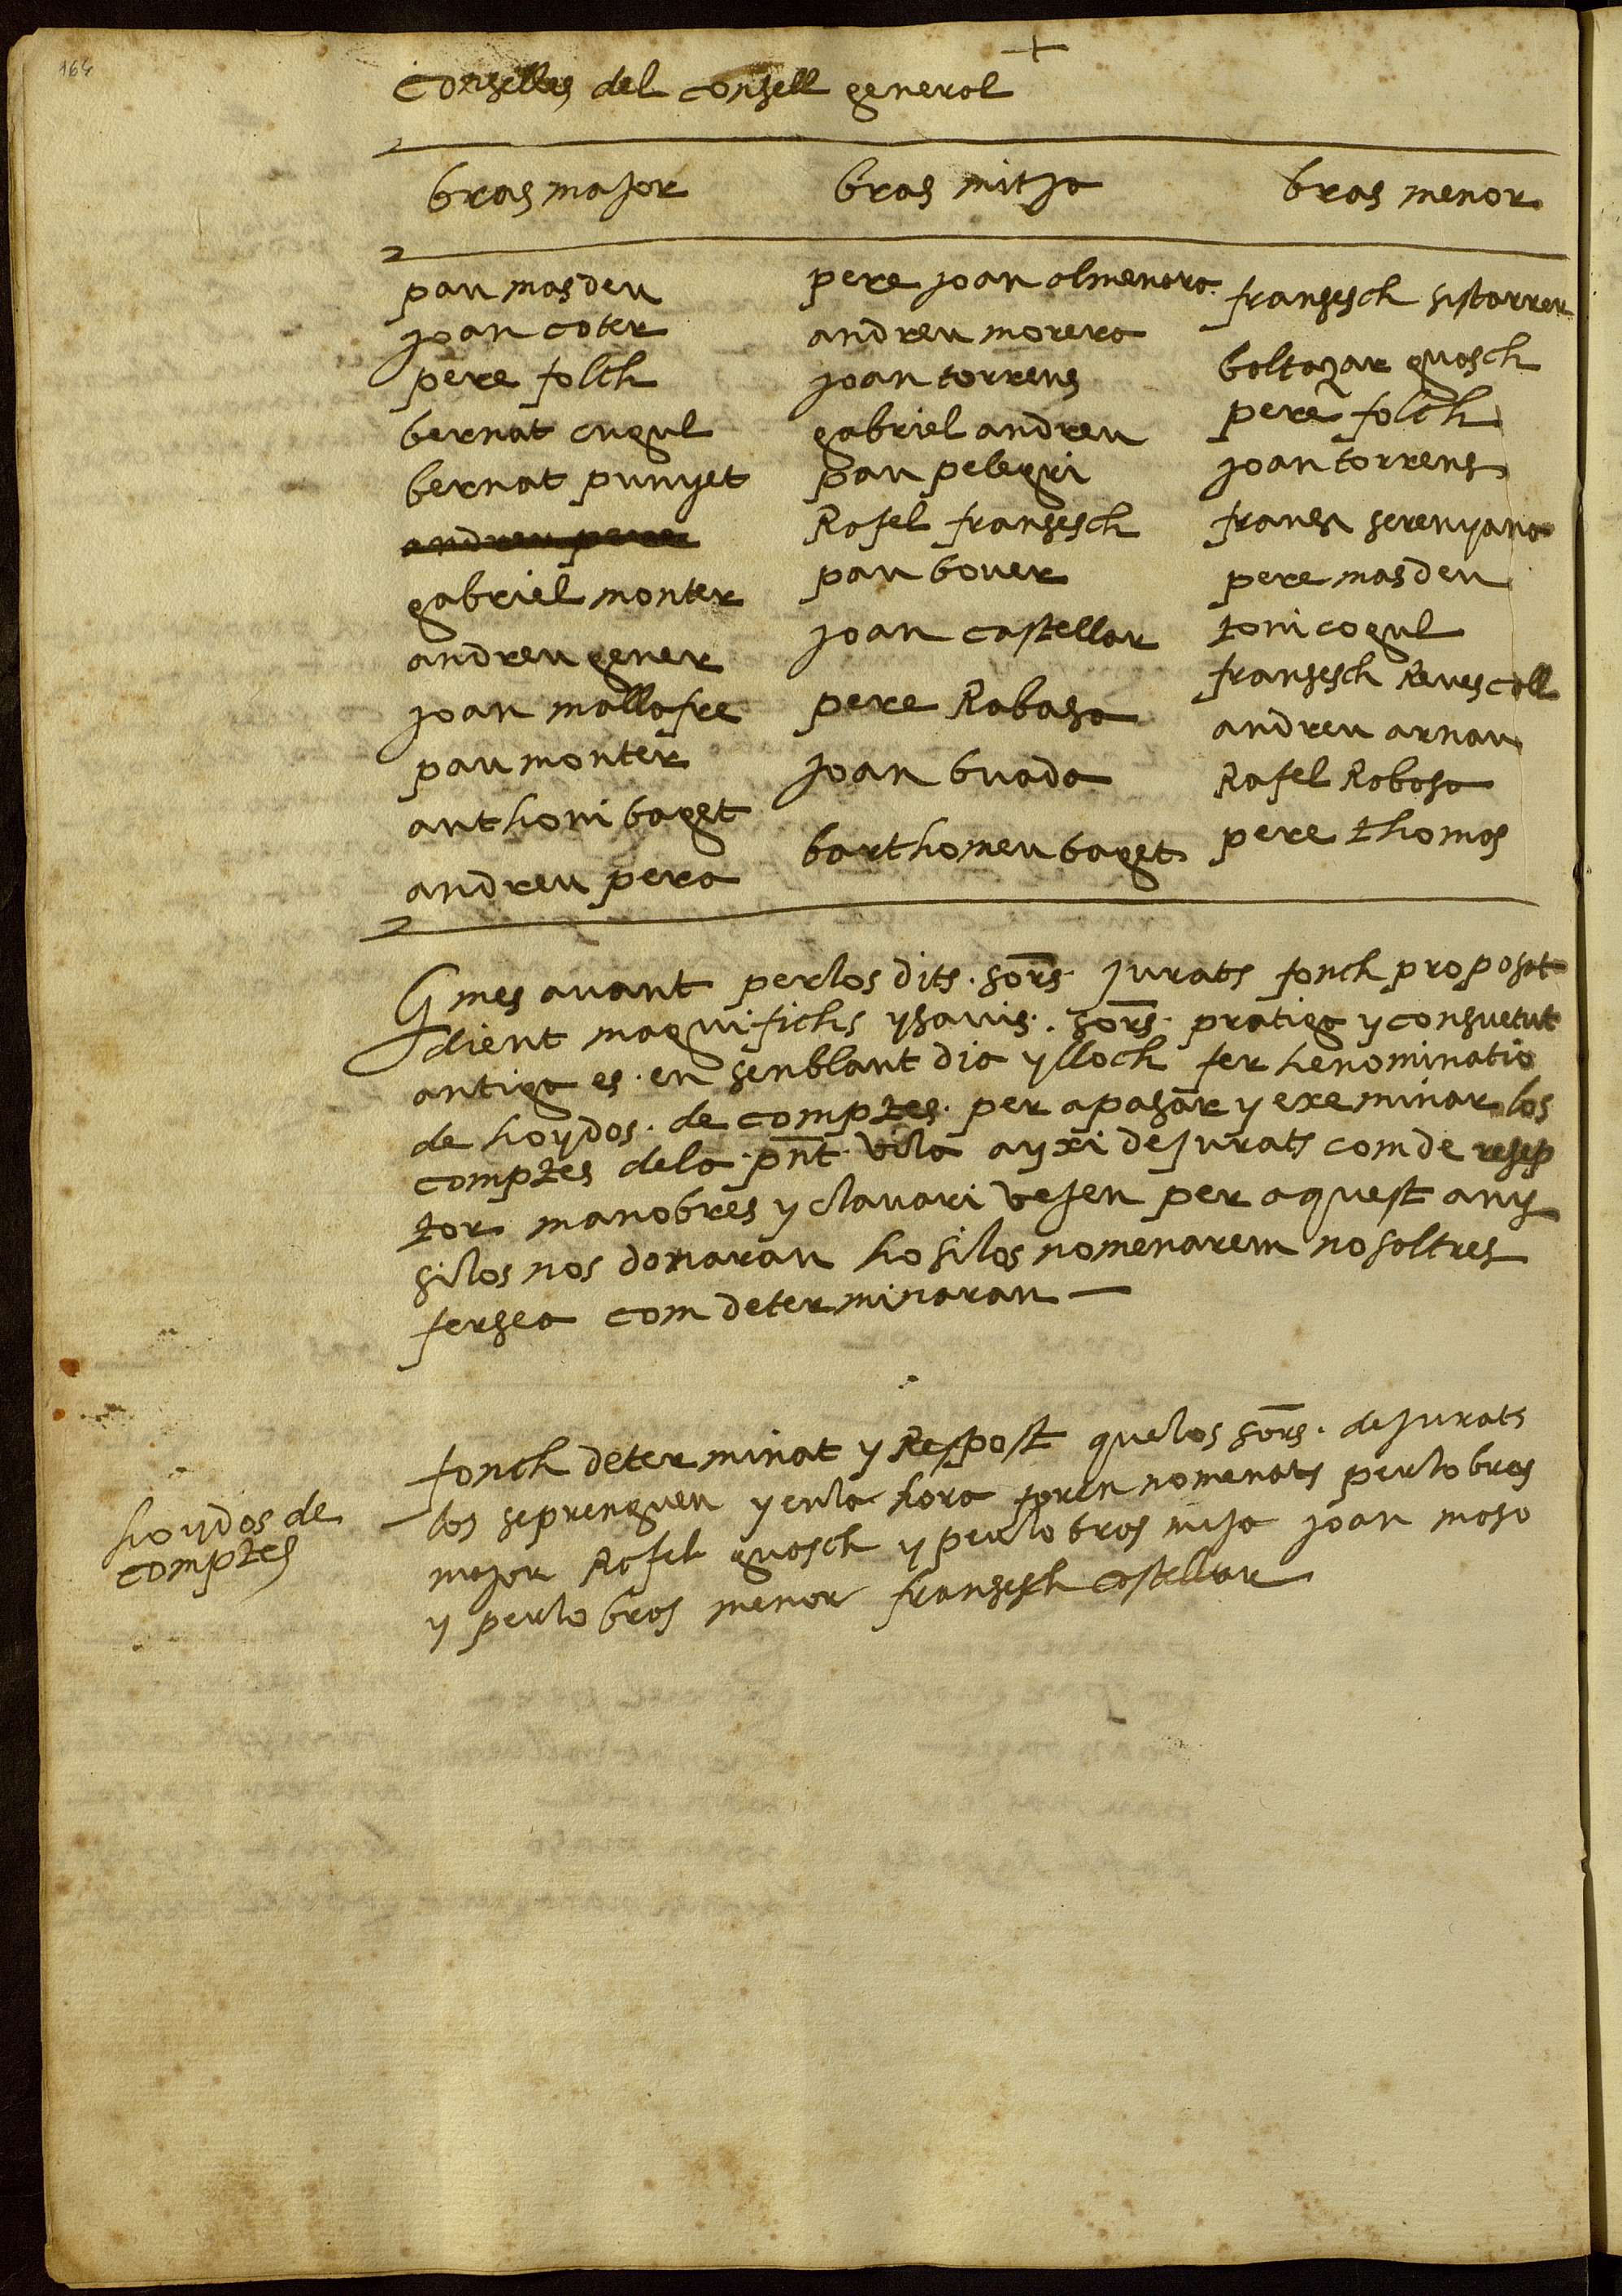 164
+
Consellés del consell general
bras major
bras mitja
bras menor
pau masdeu
joan coter
pere folch
bernat cugul
bernat punyet
gabriel monter
andreu gener
joan mallafre
pau monter
anthoni baget
andreu pera
pere joan almenara
andreu morera
joan torrens
gabriel andreu
pau pelegri
Rafel fransesch
pau bover
joan castellar
pere Rabasa
joan buada
barthomeu baget
fransesch sistarrer
baltazar guasch
pere folch
joan torrens
serenyana
pere masdeu
toni cogul
fransesch Revescoll
andreu arnau
Rafel Rabasa
pere thomas
E mes auant per los dits sors jurats fonch proposat
dient magnifichs y sauis sors pratiga y consuetut
antiga es en senblant dia y lloch fer henominatio
de hoydos de comptes per apasar y exeminar los
comptes dela pnt vila ayxi de jurats com de resep
tor manobres y clauari vejen per aquest any
si los nos donaran ho si los nomenarem nosaltres
fersea com determinaran
fonch determinat y Respost que los sors de jurats
los seprenguen y en la hora foren nomenats per lo bras
major Rafel guasch y per lo bras mija joan maso
y per lo bras menor fransesch castellar
hoydos de
comptes